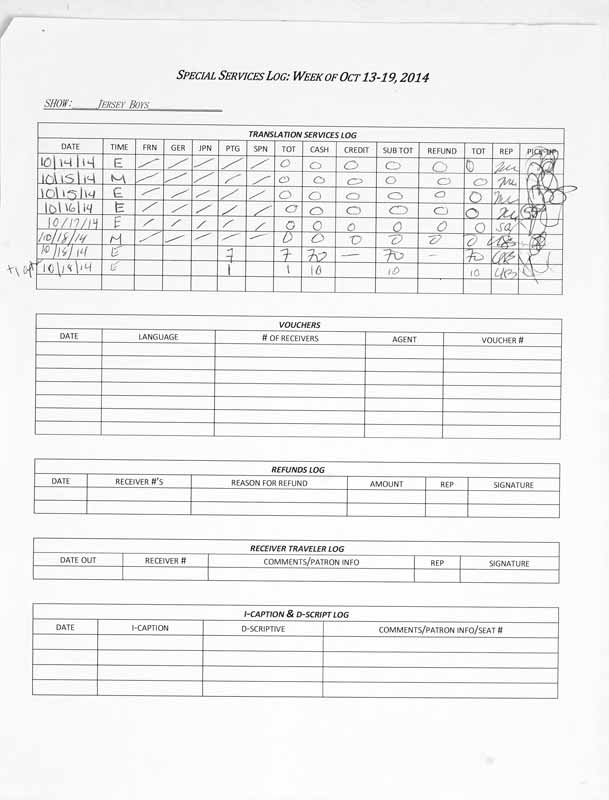 SPECIAL SERVICES LOG: WEEK OF OCT 13-19, 2014
SHOW: JERSEY BOYS
TRANSLATION SERVICES LOG
DATE TIME FRN GER JPN PTG SPN TOT CASH CREDIT SUB TOT REFUND TOT REP PICK-UP
10/14/14 E / / / / / 0 0 0 0 0 0
10/15/14 M / / / / / 0 0 0 0 0 0
10/15/14 E / / / / / 0 0 0 0 0 0
10/16/14 E / / / / / 0 0 0 0 0 0
10/17/14 E / / / / / 0 0 0 0 0 0
10/18/14 M / / / / / 0 0 0 0 0 0
10/18/14 E 7 7 70 — 70 - 70
10/18/14 E 1 1 10 10 10
VOUCHERS
DATE LANGUAGE # OF RECEIVERS AGENT VOUCHER #
REFUNDS LOG
DATE RECEIVER #'S REASON FOR REFUND AMOUNT REP SIGNATURE
RECEIVER TRAVELER LOG
DATE OUT RECEIVER # COMMENTS/PATRON INFO REP SIGNATURE
I-CAPTION & D-SCRIPT LOG
DATE I-CAPTION D-SCRIPTIVE COMMENTS/PATRON INFO/SEAT #